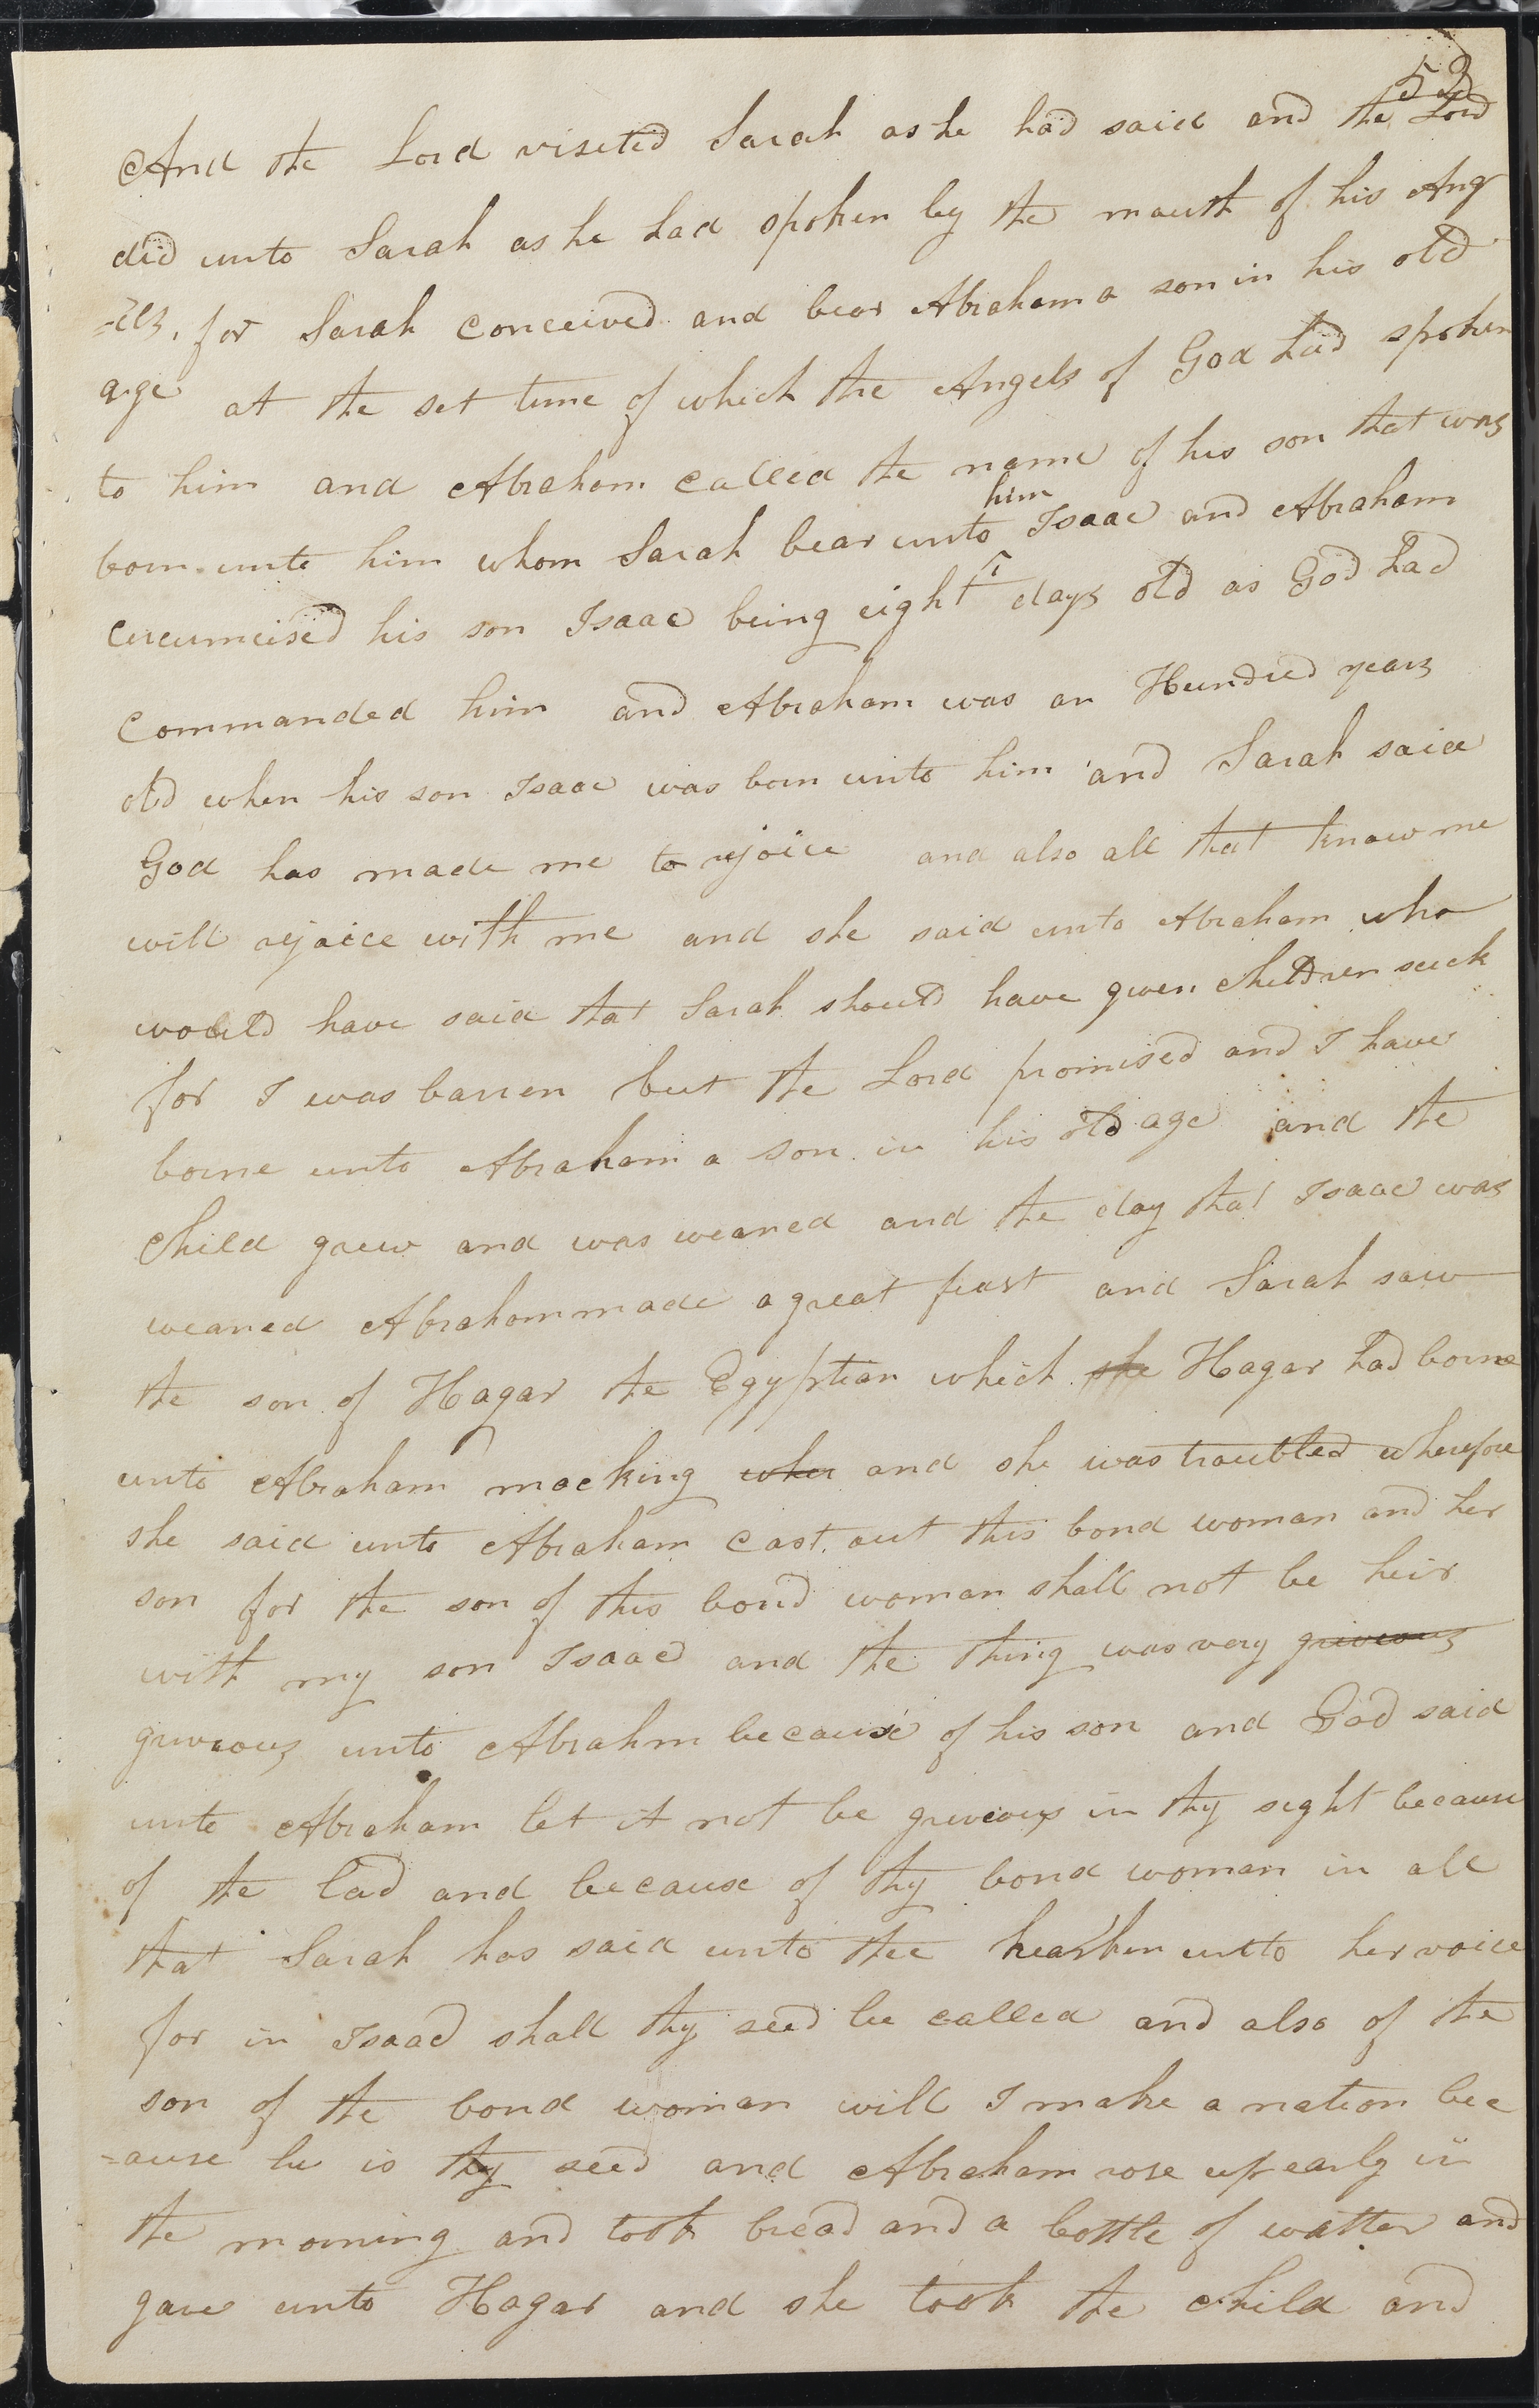 53
And the Lord viseted Sarah as he had said and the Lord
did unto Sarah as he had spoken by the mouth of his Ang
=els, for Sarah conceived and bear Abraham a son in his old
age at the set time of which the Angels of God had spoken
to him and Abraham called the name of his son that was
him
born unto him whom Sarah bear unto Isaac and Abraham
circumcised his son Isaac being eight days old as God had
commanded him and Abraham was an Hundred years
old when his son Isaac was born unto him and Sarah said
God has made me to rejoice and also all that know me
will rejoice with me and she said unto Abraham who
would have said that Sarah should have given children suck
for I was barren but the Lord promised and I have
borne unto Abraham a son in his old age and the
child grew and was weaned and the day that Isaac was
weaned Abraham made a great feast and Sarah saw
the son of Hagar the Egyptian which she Hagar had borne
unto Abraham mocking wher and she was troubled wherefore
she said unto Abraham cast out this bond woman and her
son for the son of this bond woman shall not be heir
with my son Isaac and the thing was very griveous
griveous unto Abrahm because of his son and God said
unto Abraham let it not be griveous in thy sight because
of the lad and because of thy bond woman in all
that Sarah has said unto thee hearken unto her voice
for in Isaac shall thy seed be called and also of the
son of the bond woman will I make a nation bec
=ause he is thy seed and Abraham rose up early in
the morning and took bread and a bottle of watter and
gave unto Hagar and she took the child and